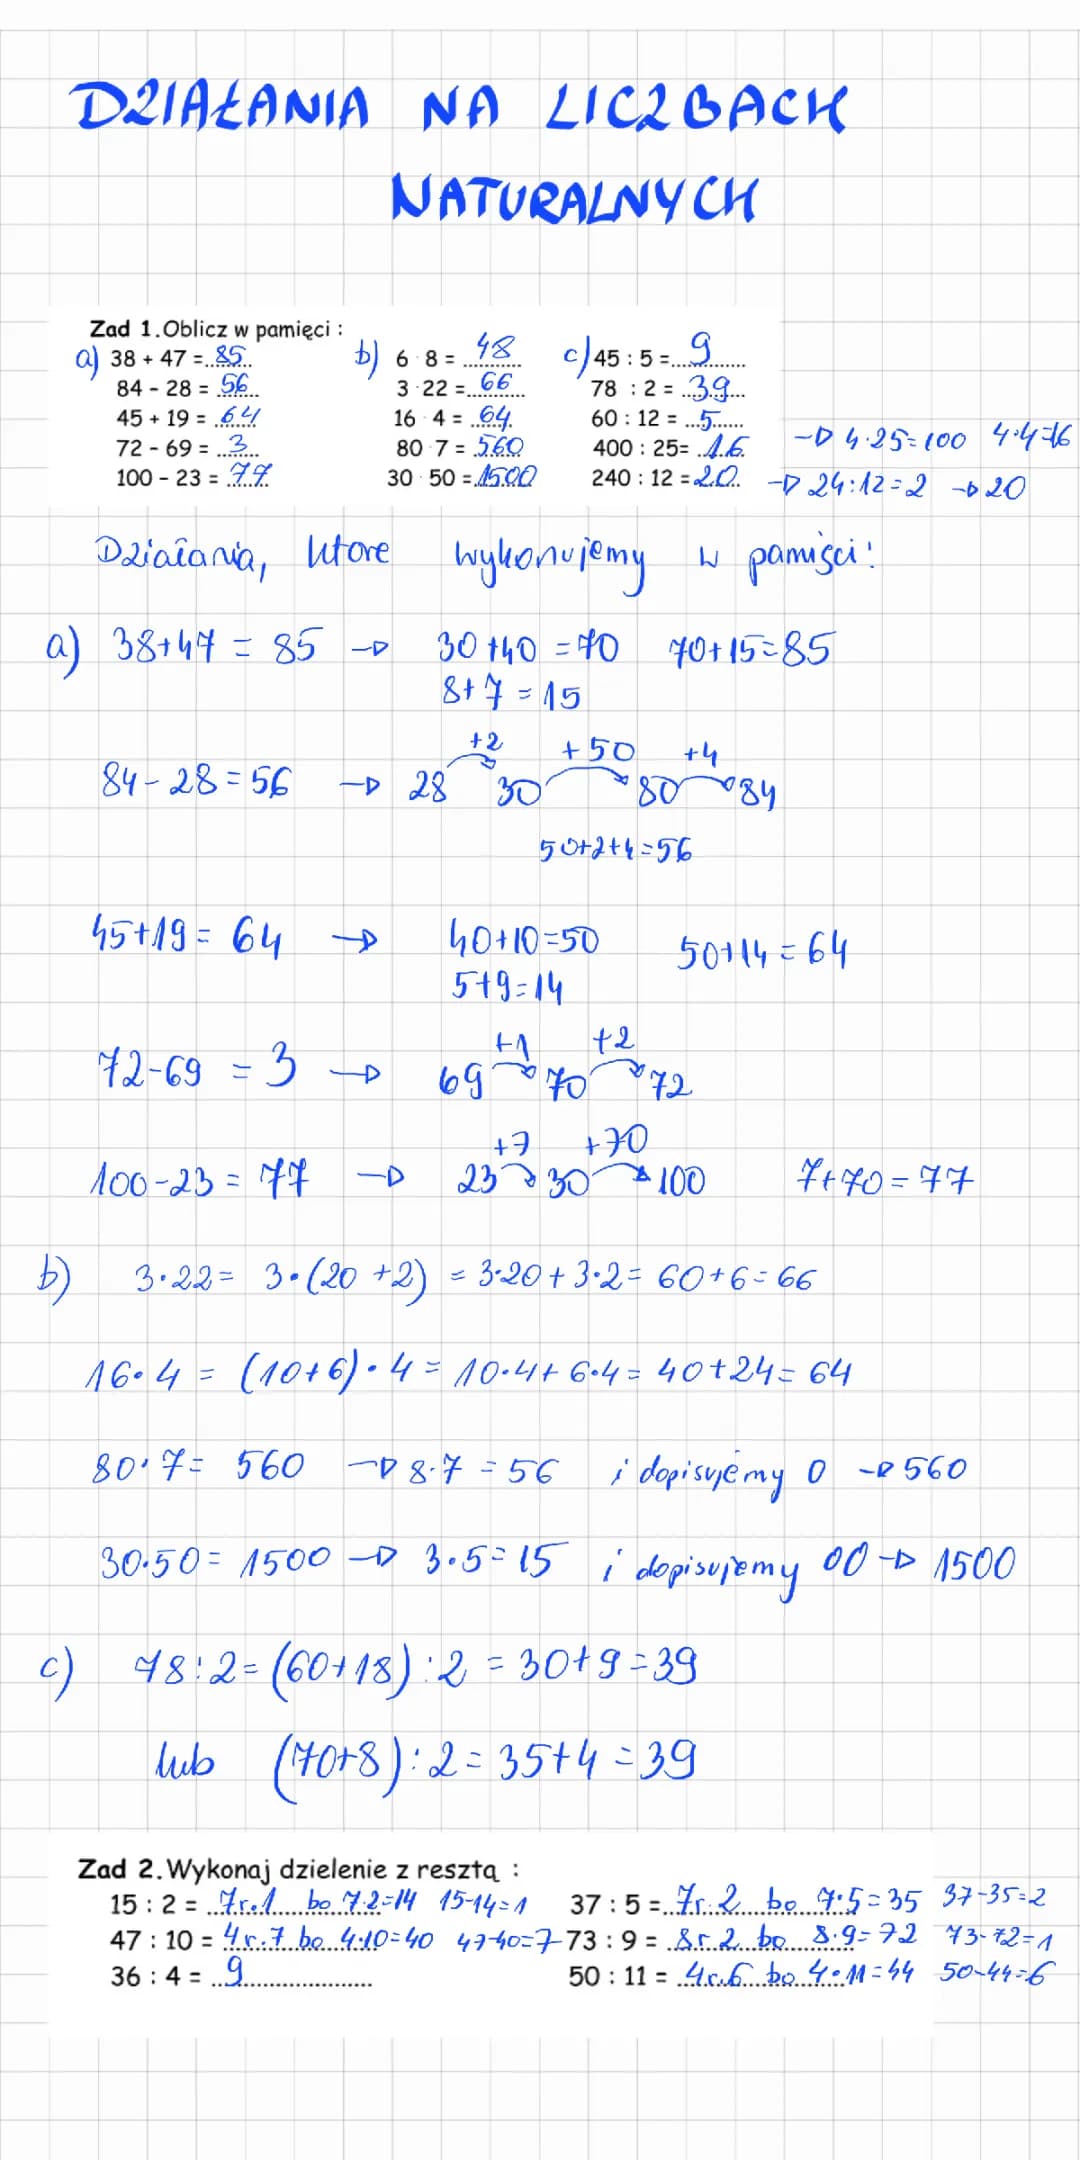 DZIAŁANIA NA LICZBACH
NATURALNYCH
Zad 1.Oblicz w pamięci :
a) 38 + 47 = 85
84 - 28 = 56
45 + 19 = 64
72 - 69 = 3
100 - 23 = 77
b) 6 · 8 = 48
3 · 22 = 66
16 · 4 = 64
80 · 7 = 560
30 · 50 = 1500
c) 45 : 5 = 9
78 : 2 = 39
60 : 12 = 5
400 : 25 = 16 → 4·25=100 4·4=16
240 : 12 = 20 → 24:12=2 → 20
Działania, które wykonujemy w pamięci:
a) 38+47 = 85 → 30+40=70 70+15=85
8+7=15
+2 +50 +4
84-28=56 → 28 30 80 84
50+2+4=56
45+19= 64 → 40+10=50 50+14=64
5+9=14
+1 +2
72-69 = 3 → 69 70 72
+7 +70
100-23 = 77 → 23 30 100 7+70=77
b) 3·22= 3·(20+2) = 3·20+3·2= 60+6=66
16·4 = (10+6)·4 = 10·4+6·4= 40+24= 64
80·7= 560 → 8·7=56 i dopisujemy 0 → 560
30·50= 1500 → 3·5=15 i dopisujemy 00 → 1500
c) 78:2=(60+18):2 = 30+9=39
lub (70+8):2=35+4=39
Zad 2.Wykonaj dzielenie z resztą :
15 : 2 = 7r.1 bo 7·2=14 15-14=1
47 : 10 = 4r.7 bo 4·10=40 47-40=7
36 : 4 = 9
37 : 5 = 7r.2 bo 7·5=35 37-35=2
73 : 9 = 8r.2 bo 8·9=72 73-72=1
50 : 11 = 4r.6 bo 4·11=44 50-44=6